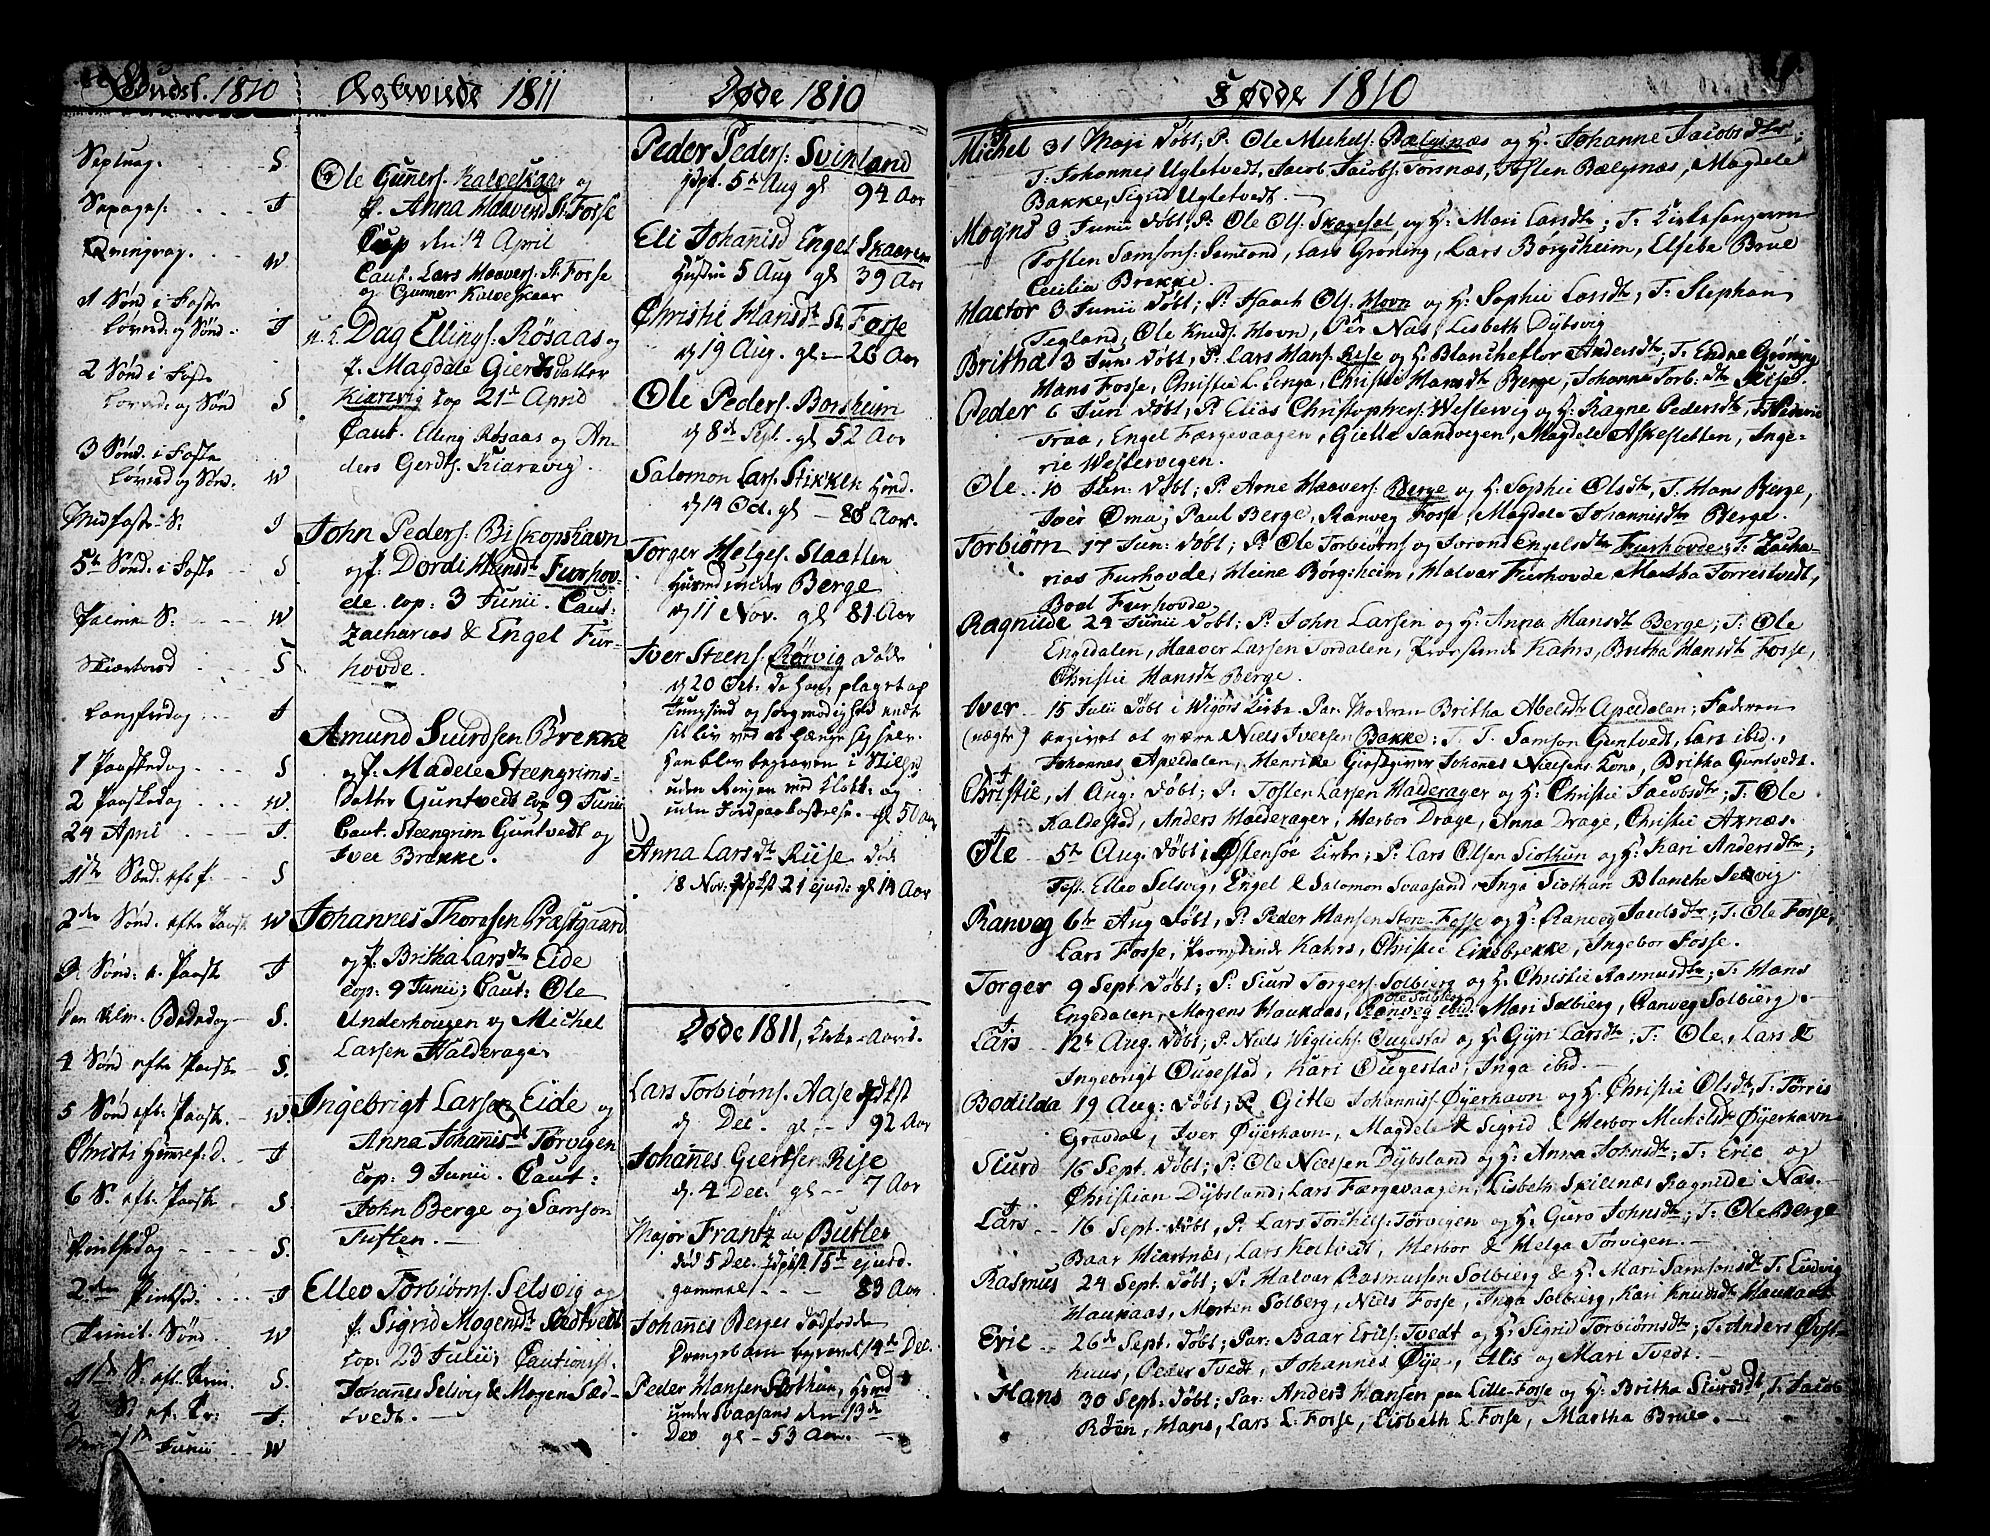 Gudst. 1810
Septuag. S
Sexages. J
Qvinqvag. W
1 Sønd i Faste
Løverd: og Sønd. J
2 Sønd i Faste
Løverd: og Sønd S
3 Sønd. i Faste
Løverd og Sønd. W
Midfaste-S. J
5te Sønd. i Faste S
Palme S. W
Skiærtorsd S
Langfredag J
1 Paaskedag S
2 Paaskedag W.
24 April J.
1ste Sønd. eft. P. S
2den Sønd. efter Paaske W
3 Sønd. e. Paaske J
Den Alm. Bededag S.
4 Sønd efter Paaske S.
5 Sønd eft. Paaske W.
Christi Himmelf. D. J
6 S. eft. Paaske S.
Pintsedag S.
2den Pintsed. J
Trinit. Sønd. W
1ste S. eft. Trin. S.
2 S. ef. Tr: J.
Den Junii W
Ægteviede 1811
Ole Gunners. Kalveskaar og
p. Anna Haaversd St. Fosse
Cop den 14 April
Caut. Lars Haavers. St. Fosse
og Gunner Kalveskaar
u. k. Dag Ellings. Røsaas og
p. Magdele Giertsdatter
Kiærevig Cop 21de April
Caut. Elling Røsaas og An-
ders Gerdts. Kiærevig.
John Peders. Biskopshavn
og p. Dordi Hansdtr Furhov-
de. cop: 3 Junii. Caut:
Zacharias & Engel Fur-
hovde.
Amund Siurdsen Brekke
og p. Madele Steengrims-
datter Guntvedt cop 9 Junii
Caut. Steengrim Guntvedt og
Iver Brekke.
Johannes Thorasen Præstgaard
og p. Britha Larsdtr Eide
cop: 9 Junii; Caut: Ole
Underhougen og Michel
Larsen Halderager
Ingebrigt Larsen Eide og
Anna Johannisdtr Torvigen
cop: 9 Junii. Caut:
John Berge og Samson
Tuften.
Ellev Torbiørns. Selsvig og
p. Sigrid Mogensdtr Sædtvedt
cop: 23 Julii; Cautionist.
Johannes Selsvig & Mogen Sæd-
tvedt.
Døde 1810
Peder Peders: Svinland
jdpt. 5te Aug gl 94 Aar
Eli Johannisd Engel Skaarens
Hustru 5 Aug gl 39 Aar
Christie Hansdtr St. Fosse
d 19 Aug. gl 26 Aar
Ole Peders. Borsheim
d 8de Sept. gl 52 Aar
Salomon Lars. Stikken Huusd.
d 14 Oct. gl 88 Aar.
Torger Helges. Slaatten
Huusmd under Berge
d 11 Nov. gl 81 Aar
Iver Steens. Rørvig døde
d 20 Oct. da han, plaget af
Tungsind og sorgmodighed endte
sit liv ved at hænge sig selv.
Han blev begraven i Stilhed
uden Ringen med Klokk. og
uden Jordpaakastelse. gl 50 Aar
Anna Larsdtr Riise død
18 Nov. jdptst 21 ejusd: gl 14 Aar
Døde 1811, Kirke-Aaret.
Lars Torbiørns. Aase jdptst
d Dec. gl 92 Aar
Johannes Giertsen Rise
d. 4 Dec. gl 7 Aar
Major Frantz de Butler
død 5 Dec. jdptst. 15de ejusd.
gammel 83 Aar
Johannes Berges dødfødde
Drengebarn begravet 14de Dec.
Peder Hansen Slothun, Huusd
under Svaasand den 13de
Dec gl 53 Aar.
Fødde 1810
Michel 31 Maji døbt; P. Ole Michels. Bælgsnæs og H. Johanne Jacobsdtr;
T. Johannes Ugletvedt, Jacob Jacobs. Torsnæs, Tosten Bælgsnæs, Magdele
Bakke, Sigrid Ugletvedt.
Mognd 3 Junii døbt; P. Ole Ols. Skogesel og H. Mari Larsdtr; T. Kirkesangeren
Tosten Samsons: Samland, Lars Grøning, Lars Borgsheim, Elsebe Brue
Cecilia Brekke.
Hactor 3 Junii døbt; P. Haach Ols. Hovn og H. Sophie Larsdtr; T. Stephan
Tegland, Ole Knuds. Hovn, Per Nas, Lisbeth Dybsvig
Britha 3 Jun: døbt; P. Lars Hans. Rise og H. Blancheflor Andersdtr; T. Endre Grøning
Hans Fosse, Christie L. Linga, Christie Hansdtr Berge, Johanna Torb. dtr Riise.
Peder 6 Jun døbt; P. Elias Christophers. Westervig og H. Ragne Pedersdtr;
Traa, Engel Færgevaagen, Gielle Sandvegen, Magdele Askesletten, Inge-
rie Westervigen.
Ole 10 Jun: døbt; P. Arne Haavers. Berge og H. Sophie Olsdtr, T. Hans Berge,
Iver Oma; Paul Berge, Ranveg Fosse, Magdele Johannisdtr Berge.
Torbiørn 17 Jun: døbt; P. Ole Torbiørns og Torond Engelsdtr Furhovde; T. Zacha-
rias Furhovde; Heine Børgsheim, Halvar Furhovde, Martha Torrestvedt,
Boel Furhovde,
Ragnilde 24 Junii døbt; P. John Larsen og H. Anna Hansdtr Berge; T. Ole
Engedalen, Haaver Larsen Jordalen, Provstinde Kahrs, Britha Hansdtr Fosse,
Christie Hansdtr Berge.
Iver 15 Julii døbt i Wigørs Kirke. Par. Moderen Britha Abelsdtr Apedalen; Faderen
(uægte) angivet at være Niels Iversen Bakke; T. T. Samson Guntvedt, Lars ibid.,
Johannes Apedalen, Henrikke Giestgiver Johannes Nielsens Kone, Britha Guntvedt.
Christie, 1 Aug: døbt; P. Tosten Larsen Halderager og H. Christie Jacobsdtr; T. Ole
Kaldestad, Anders Halderager, Herbor Drage, Anna Drage, Christie Axnæs.
Ole 5te Aug. døbt i Østensøe Kirke; P. Lars Olsen Slothun og H: Kari Andersdtr;
Test. Ellev Selsvig, Engel & Salomon Svaasand, Inga Slothun Blanche Selsvig.
Ranveg 6te Aug døbt; P. Peder Hansen Store-Fosse og H. Ranveg Jacobsdtr; T. Ole Fosse,
Lars Fosse, Provstinde Kahrs, Christie Eikebrekke, Ingebor Fosse.
Torger 9 Sept. døbt; P. Siurd Torgers. Solbierg og H. Christie Rasmusdtr; T. Hans
Engedalen, Mogens Haukaas, Ole Solbierg Ranveg ibid. Mari Solbierg, Ranveg Solbierg.
Lars 12te Aug. døbt; P. Niels Wiglichs. Ougestad og H. Gyri Larsdtr; T. Ole, Lars &
Ingebrigt Ougestad, Kari Ougestad; Inga ibid.
Bodilda 19 Aug: døbt; P. Gitle Johanniss. Øyerhavn og H. Christie Olsdtr; T. Torris
Gravdal, Iver Øyerhavn, Magdele & Sigrid & Herbor Michelsdtr Øyerhavn
Siurd 16 Sept. døbt; P. Ole Nielsen Dybsland og H. Anna Johnsdtr; T. Eric og
Christian Dybsland; Lars Færgevaagen, Lisbeth Skillnæs Ragnilde Nas.
Lars 16 Sept. døbt; P. Lars Torkels. Torvigen og H. Guro Johnsdtr; T. Ole Berge
Baar Hiartnæs, Lars Koltvedt, Herbor & Helga Torvigen.
Rasmus 24 Sept. døbt; P. Halvar Rasmussen Solbierg & H. Mari Samsonsdtr T. Ludvig
Haukaas, Morten Solberg, Niels Fosse, Inga Solbierg, Kari Knudsdtr Haukaas
Eric 26de Sept. døbt; Par. Baar Erics. Tvedt og H. Sigrid Torbiørnsdtr; T. Anders Øvst-
huus, Peder Tvedt, Johannes Øye, Alis og Mari Tvedt.
Hans 30 Sept. døbt; Par. Anders Hansen paa Lille-Fosse og H. Britha Siursdtr, T. Jacob
Røen, Hans, Lars L. Fosse, Lisbeth L. Fosse, Martha Brue.